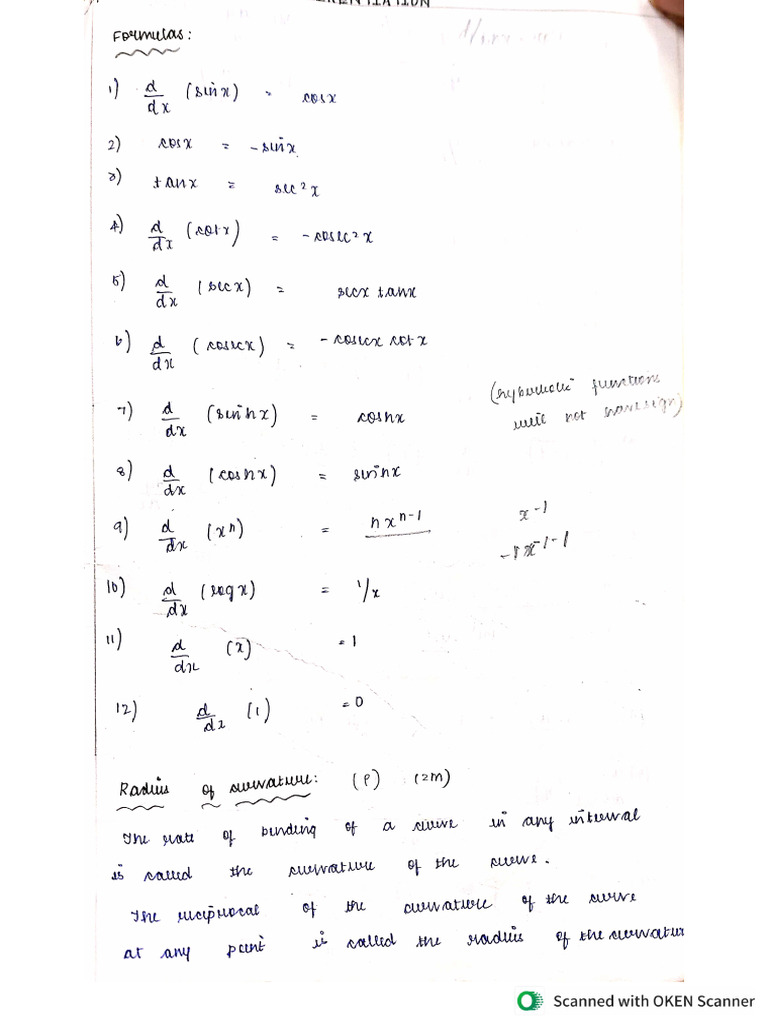 ERENTIATION
Formulas:
1) d/dx (sinx) = cosx
2) cosx = -sinx
3) tanx = sec²x
4) d/dx (cotx) = -cosec²x
5) d/dx (secx) = secx tanx
6) d/dx (cosecx) = -cosecx cotx
(hyberbolic functions
will not have sign)
7) d/dx (sinhx) = coshx
8) d/dx (coshx) = sinhx
9) d/dx (xⁿ) = nxⁿ⁻¹ x⁻¹
-1x⁻¹⁻¹
10) d/dx (logx) = 1/x
11) d/dx (x) = 1
12) d/dx (1) = 0
Radius of curvature: (ρ) (2M)
The rate of bending of a curve in any interval
is called the curvature of the curve.
The reciprocal of the curvature of the curve
at any point is called the radius of the curvatur
Scanned with OKEN Scanner